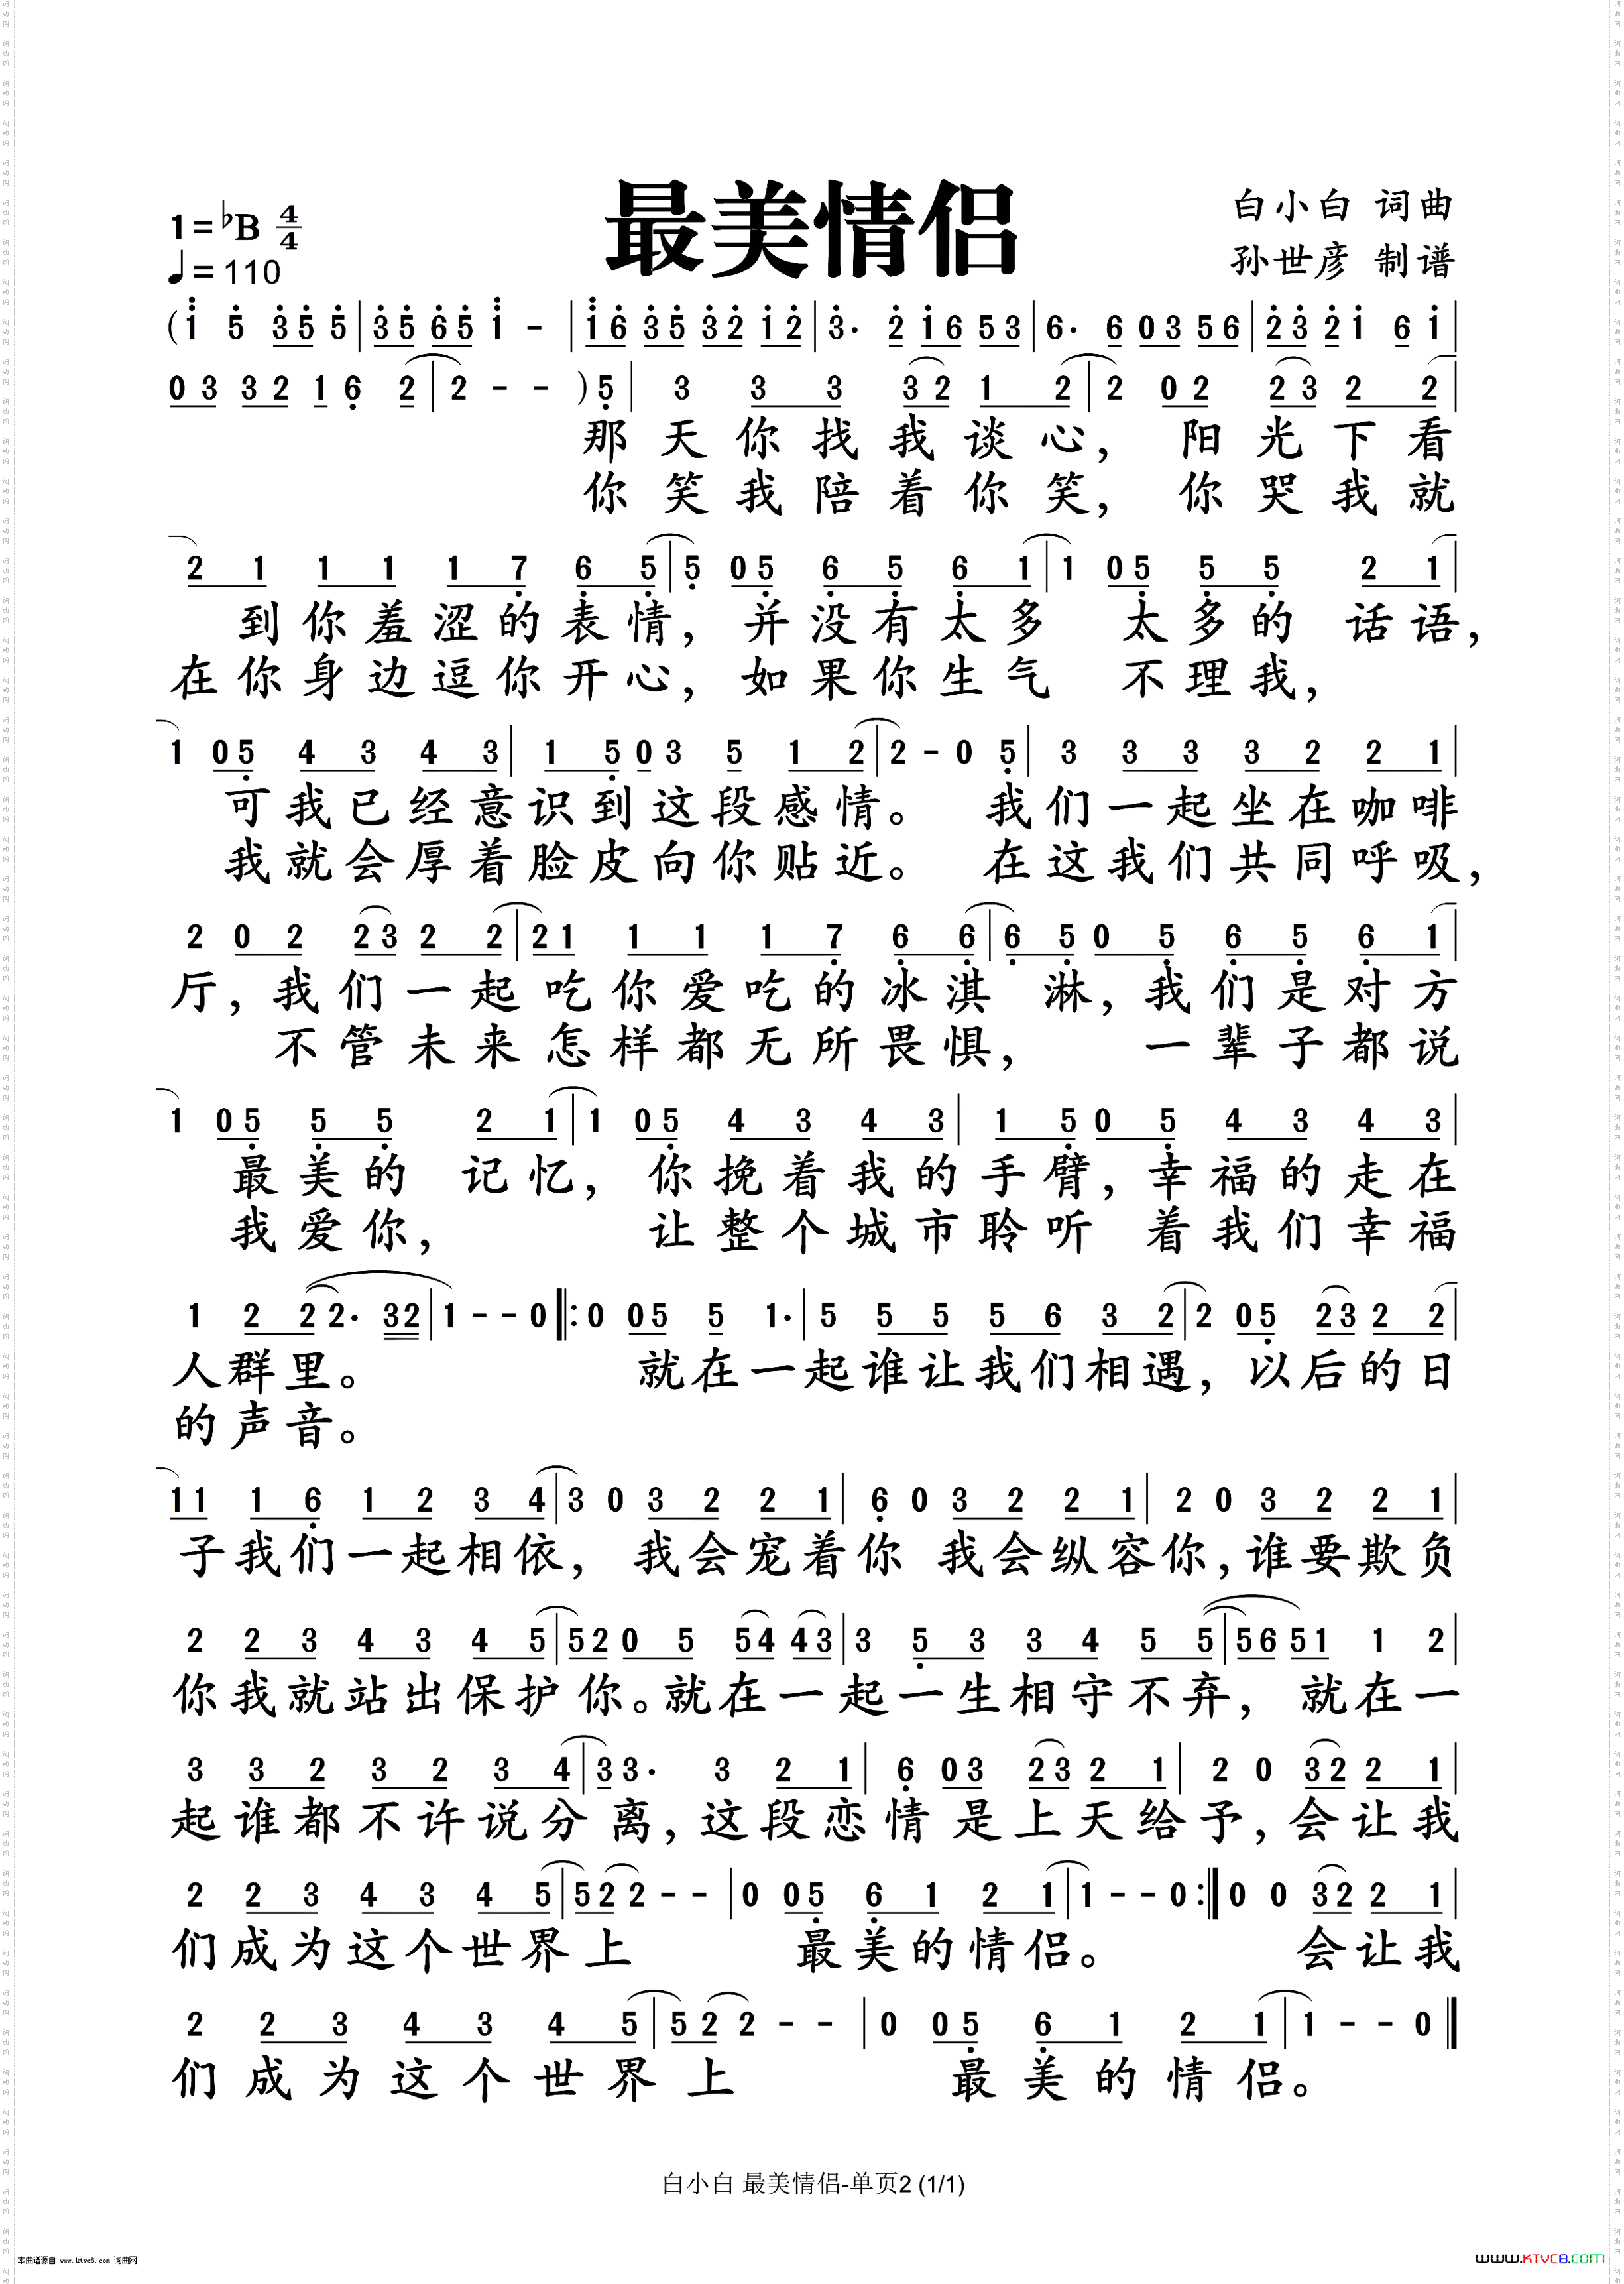 最美情侣
白小白 词曲
孙世彦 制谱
1=♭B 4/4
♩=110
(1 5 3 5 5 | 3 5 6 5 1 - | 1 6 3 5 3 2 1 2 | 3. 2 1 6 5 3 | 6. 6 0 3 5 6 | 2 3 2 1 6 1 |
0 3 3 2 1 6 2 | 2 - - ) 5 | 3 3 3 3 2 1 2 | 2 0 2 2 3 2 2 |
那天你找我谈心，阳光下看
你笑我陪着你笑，你哭我就
2 1 1 1 1 7 6 5 | 5 0 5 6 5 6 1 | 1 0 5 5 5 2 1 |
到你羞涩的表情，并没有太多 太多的 话语，
在你身边逗你开心，如果你生气 不理我，
1 0 5 4 3 4 3 | 1 5 0 3 5 1 2 | 2 - 0 5 | 3 3 3 3 2 2 1 |
可我已经意识到这段感情。 我们一起坐在咖啡
我就会厚着脸皮向你贴近。 在这我们共同呼吸，
2 0 2 2 3 2 2 | 2 1 1 1 1 7 6 6 | 6 5 0 5 6 5 6 1 |
厅，我们一起吃你爱吃的冰淇 淋，我们是对方
不管未来怎样都无所畏惧， 一辈子都说
1 0 5 5 5 2 1 | 1 0 5 4 3 4 3 | 1 5 0 5 4 3 4 3 |
最美的 记忆，你挽着我的手臂，幸福的走在
我爱你， 让整个城市聆听 着我们幸福
1 2 2 2. 3 2 | 1 - - 0 ‖: 0 0 5 5 1. | 5 5 5 5 6 3 2 | 2 0 5 2 3 2 2 |
人群里。 就在一起谁让我们相遇，以后的日
的声音。
1 1 1 6 1 2 3 4 | 3 0 3 2 2 1 | 6 0 3 2 2 1 | 2 0 3 2 2 1 |
子我们一起相依， 我会宠着你 我会纵容你，谁要欺负
2 2 3 4 3 4 5 | 5 2 0 5 5 4 4 3 | 3 5 3 3 4 5 5 | 5 6 5 1 1 2 |
你我就站出保护你。就在一起一生相守不弃， 就在一
3 3 2 3 2 3 4 | 3 3. 3 2 1 | 6 0 3 2 3 2 1 | 2 0 3 2 2 1 |
起谁都不许说分离，这段恋情是上天给予，会让我
2 2 3 4 3 4 5 | 5 2 2 - - | 0 0 5 6 1 2 1 | 1 - - 0 :‖ 0 0 3 2 2 1 |
们成为这个世界上 最美的情侣。 会让我
2 2 3 4 3 4 5 | 5 2 2 - - | 0 0 5 6 1 2 1 | 1 - - 0 ‖
们成为这个世界上 最美的情侣。
白小白 最美情侣-单页2 (1/1)
本曲谱源自 www.ktvc8.com 词曲网
www.KTVC8.com